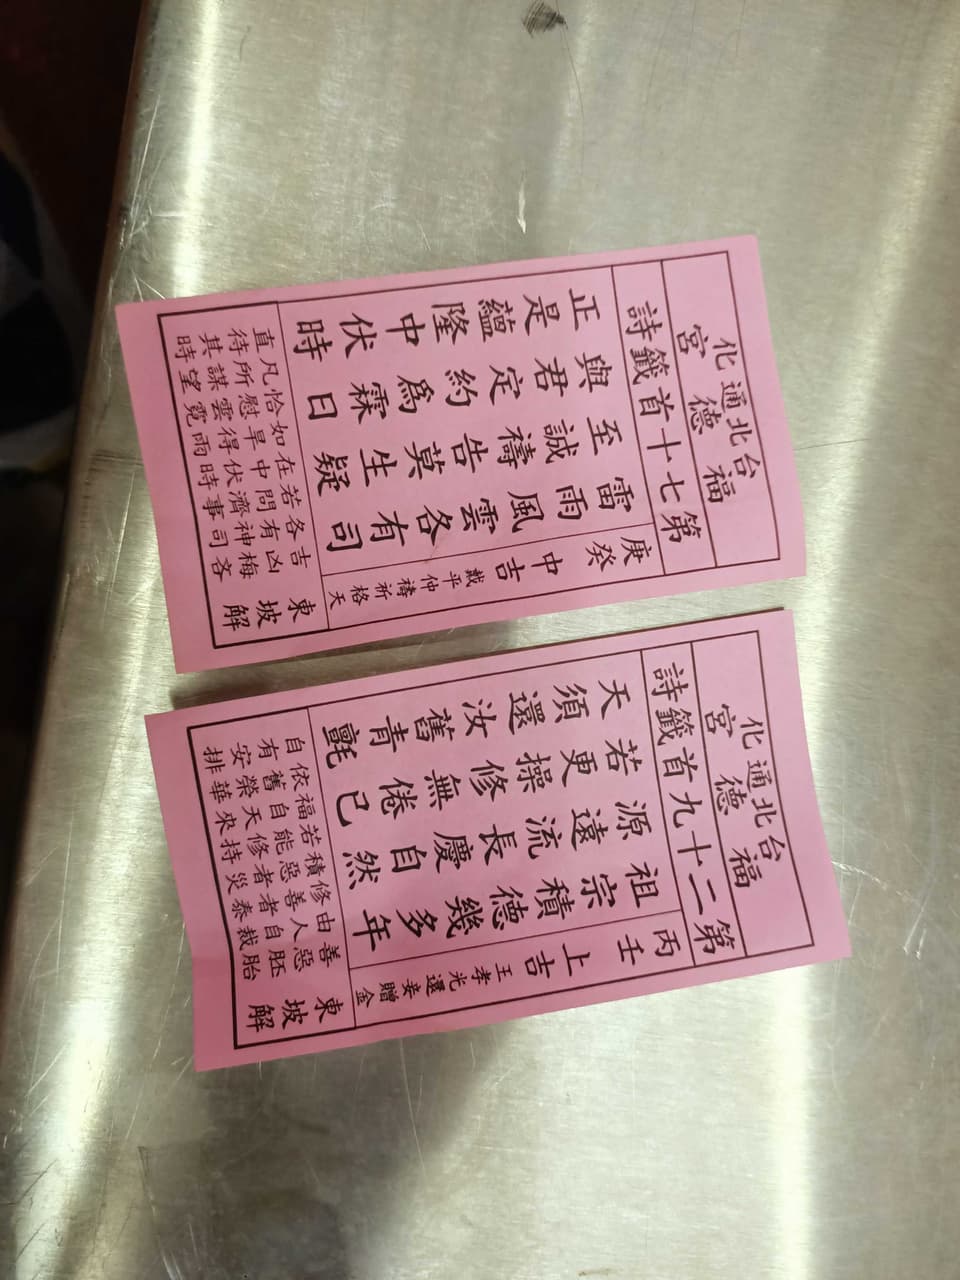 台北通化
福德宮
第七十首籤詩
庚癸
中吉
戴平仲禱祈格天
雷雨風雲各有司
至誠禱告莫生疑
與君定約為霖日
正是蘊隆中伏時
東坡解
吉凶梅吝
各有神司
若問濟事
在中伏時
如旱得雨
恰慰雲霓
凡所謀望
直待其時
台北通化
福德宮
第二十九首籤詩
丙壬
上吉
王孝光還妾贈金
祖宗積德幾多年
源遠流長慶自然
若更操修無倦已
天須還汝舊青氈
東坡解
善惡胚胎
由人自裁
修善者泰
積惡者災
若能修持
福自天來
依舊榮華
自有安排